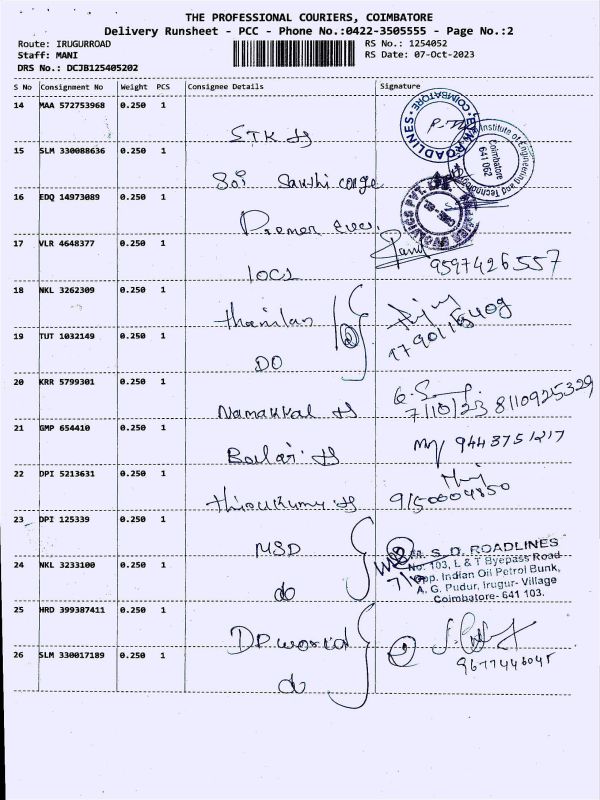 THE PROFESSIONAL COURIERS, COIMBATORE
Delivery Runsheet - PCC - Phone No.:0422-3505555 - Page No.:2
Route: IRUGURROAD
RS No.: 1254052
Staff: MANI
RS Date: 07-Oct-2023
DRS No.: DCJB125405202
S No Consignment No Weight PCS Consignee Details Signature
14 MAA 572753968 0.250 1
STK
COIMBATORE
ROADLINES
Institute of Engineering and Technology
Coimbatore
641 062
15 SLM 330088636 0.250 1
Sri Sakthi
16 EDQ 14973089 0.250 1
Premer
17 VLR 4648377 0.250 1
IOCL
9597426557
18 NKL 3262309 0.250 1
19 TUT 1032149 0.250 1
DO
20 KRR 5799301 0.250 1
Namakkal
7/10/23 8110925329
21 GMP 654410 0.250 1
Balaji
22 DPI 5213631 0.250 1
9150004850
23 DPI 125339 0.250 1
MSD
M. S. D. ROADLINES
No: 103, L & T Byepass Road
Opp. Indian Oil Petrol Bunk,
A. G. Pudur, Irugur- Village
Coimbatore- 641 103.
24 NKL 3233100 0.250 1
do
25 HRD 399387411 0.250 1
DP world
26 SLM 330017189 0.250 1
do
9677446045